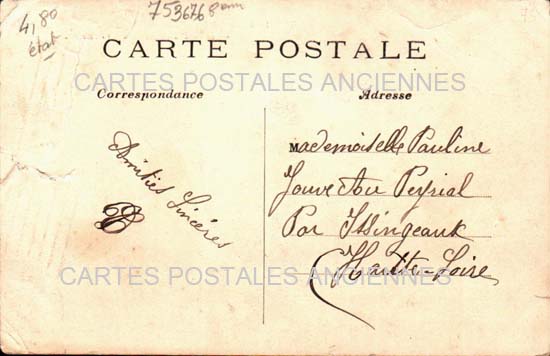 4,80
état
7536768
CARTE POSTALE
CARTES POSTALES ANCIENNES
Correspondance
Adresse
Amitiés Sincères
Mademoiselle Pauline
Jouve au Peyrial
Par Issingeaux
Haute-Loire
CARTES POSTALES ANCIENNES